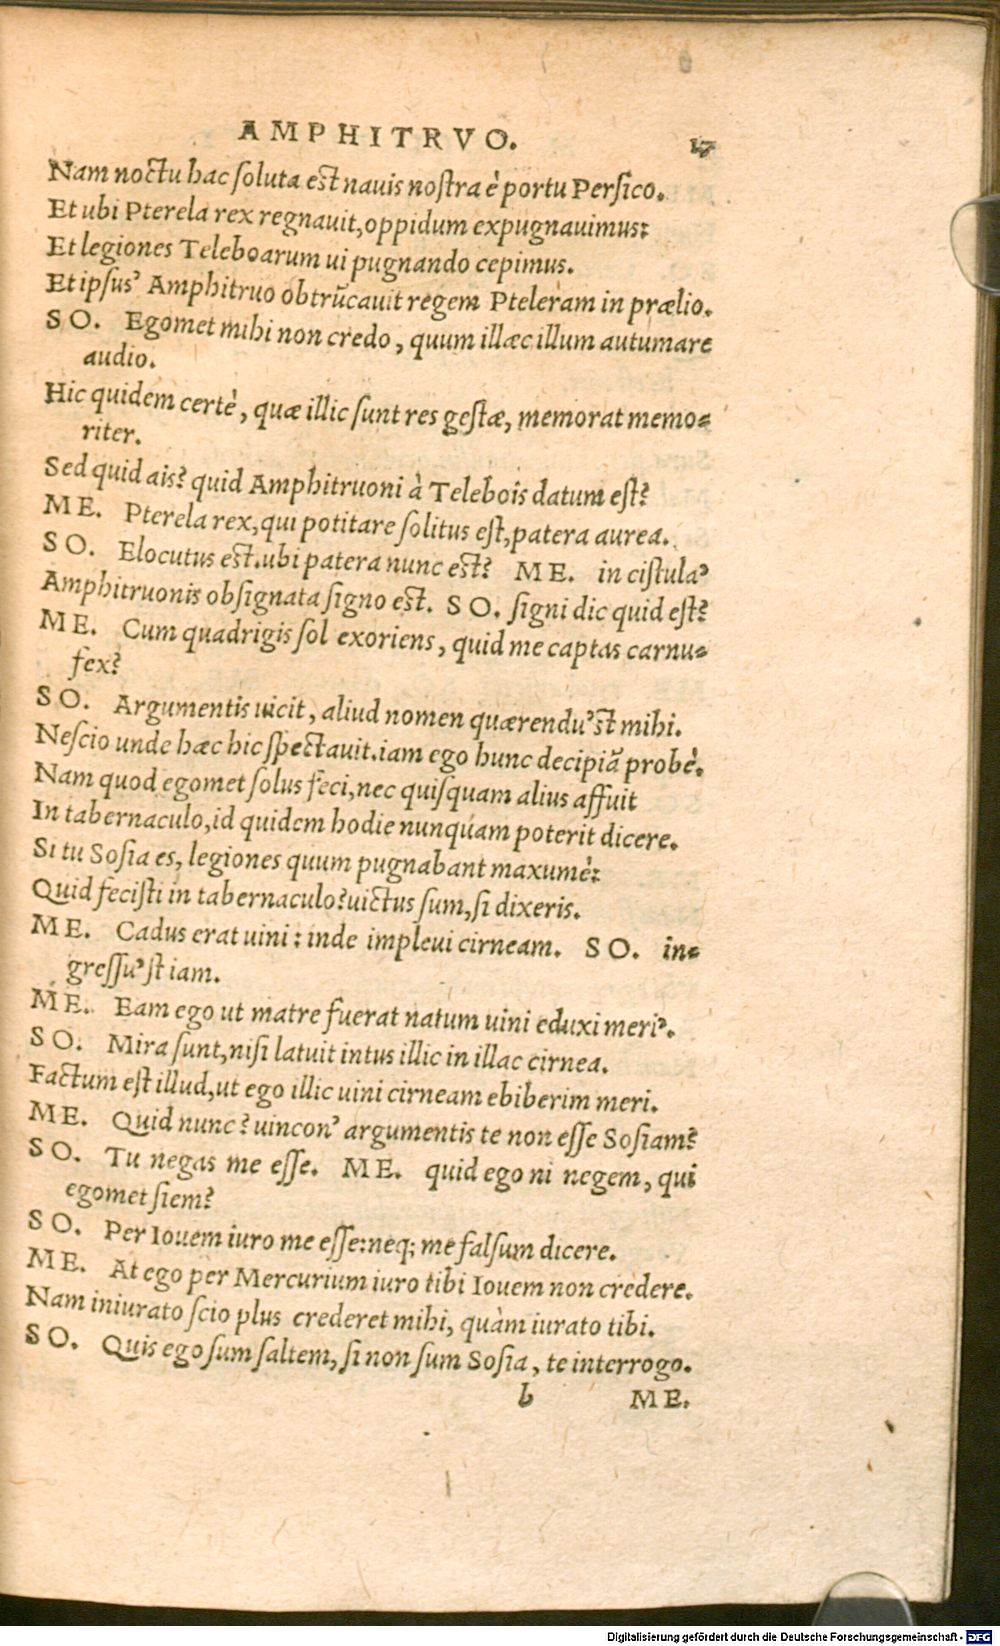 AMPHITRVO. 17
Nam noctu hac soluta est nauis nostra è portu Persico.
Et ubi Pterela rex regnauit, oppidum expugnauimus:
Et legiones Teleboarum ui pugnando cepimus.
Et ipsus' Amphitruo obtrũcauit regem Pteleram in prælio.
SO. Egomet mihi non credo, quum illæc illum autumare
audio.
Hic quidem certè, quæ illic sunt res gestæ, memorat memo=
riter.
Sed quid ais? quid Amphitruoni à Telebois datum est?
ME. Pterela rex, qui potitare solitus est, patera aurea.
SO. Elocutus est. ubi patera nunc est? ME. in cistula'
Amphitruonis obsignata signo est. SO. signi dic quid est?
ME. Cum quadrigis sol exoriens, quid me captas carnu=
fex?
SO. Argumentis uicit, aliud nomen quærendu'st mihi.
Nescio unde hæc hic spectauit. iam ego hunc decipiã probè.
Nam quod egomet solus feci, nec quisquam alius affuit
In tabernaculo, id quidem hodie nunquam poterit dicere.
Si tu Sosia es, legiones quum pugnabant maxumè:
Quid fecisti in tabernaculo? uictus sum, si dixeris.
ME. Cadus erat uini: inde impleui cirneam. SO. in=
gressu'st iam.
ME. Eam ego ut matre fuerat natum uini eduxi meri'.
SO. Mira sunt, nisi latuit intus illic in illac cirnea.
Factum est illud, ut ego illic uini cirneam ebiberim meri.
ME. Quid nunc? uincon' argumentis te non esse Sosiam?
SO. Tu negas me esse. ME. quid ego ni negem, qui
egomet siem?
SO. Per Iouem iuro me esse: neq; me falsum dicere.
ME. At ego per Mercurium iuro tibi Iouem non credere.
Nam iniurato scio plus crederet mihi, quàm iurato tibi.
SO. Quis ego sum saltem, si non sum Sosia, te interrogo.
b ME.
Digitalisierung gefördert durch die Deutsche Forschungsgemeinschaft - DFG